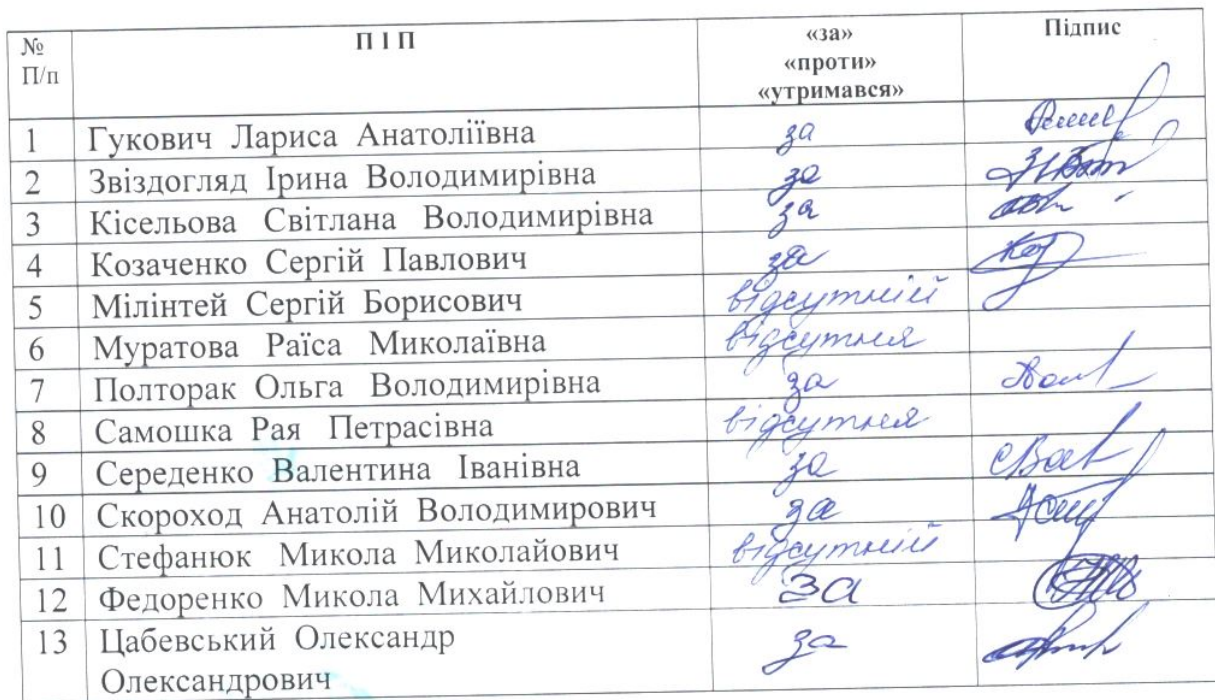 № П І П «за» Підпис
П/п «проти»
«утримався»
1 Гукович Лариса Анатоліївна за
2 Звіздогляд Ірина Володимирівна за
3 Кісельова Світлана Володимирівна за
4 Козаченко Сергій Павлович за
5 Мілінтей Сергій Борисович відсутній
6 Муратова Раїса Миколаївна відсутня
7 Полторак Ольга Володимирівна за
8 Самошка Рая Петрасівна відсутня
9 Середенко Валентина Іванівна за
10 Скороход Анатолій Володимирович за
11 Стефанюк Микола Миколайович відсутній
12 Федоренко Микола Михайлович за
13 Цабевський Олександр за
Олександрович